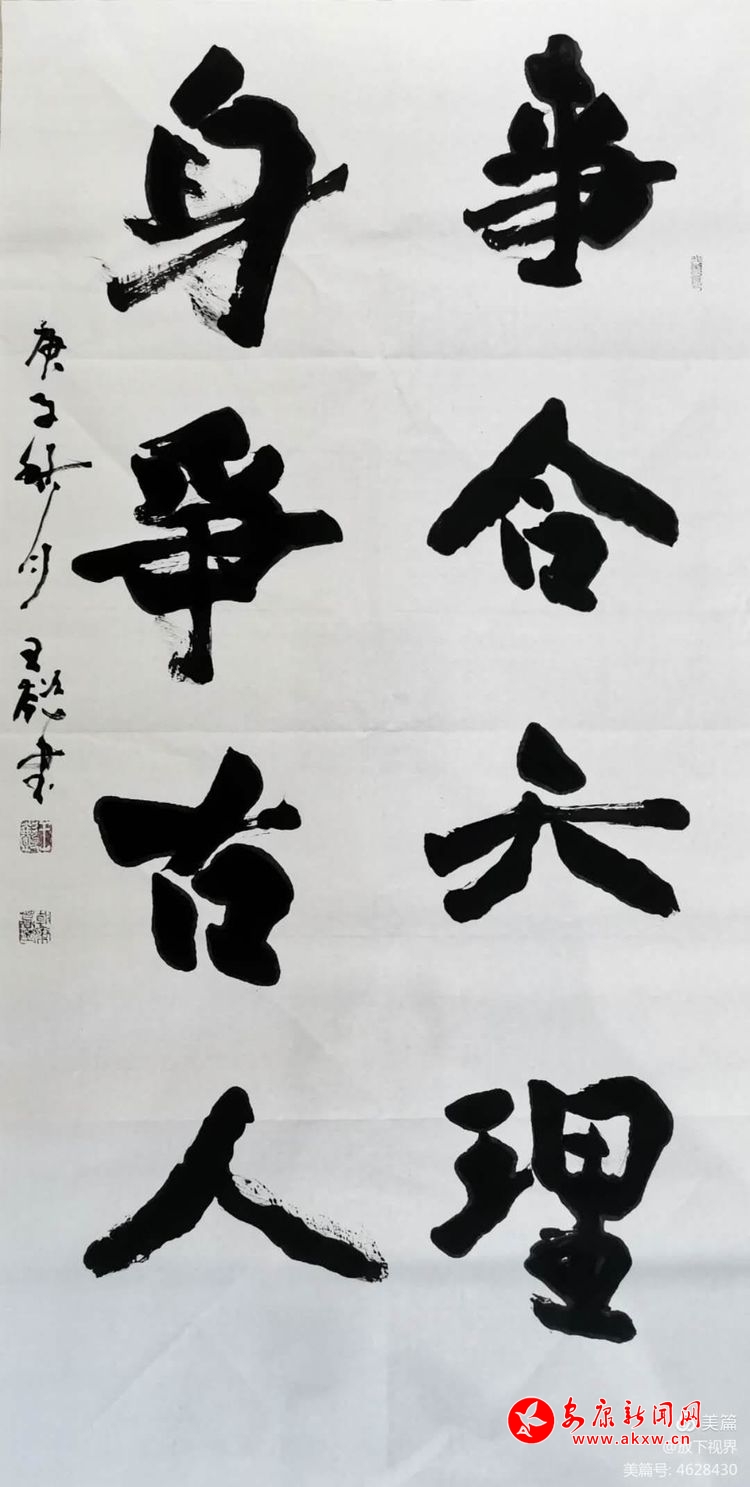 事合理
身爭古人
庚子秋月 王 书
安康新闻网
www.akxw.cn
美篇
@放下视界
美篇号: 4628430